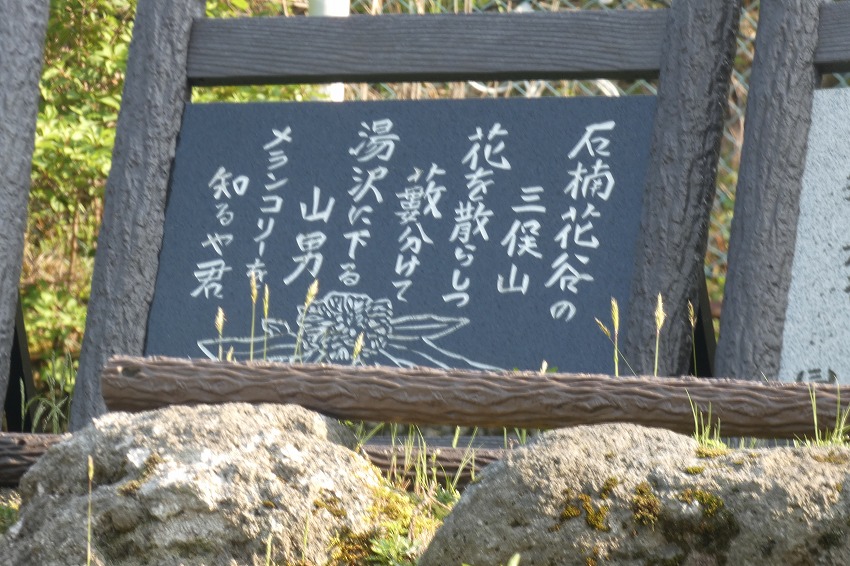 石楠花谷の
三俣山
花を散らしつ
藪分けて
湯沢に下る
山男
メランコリーを
知るや君